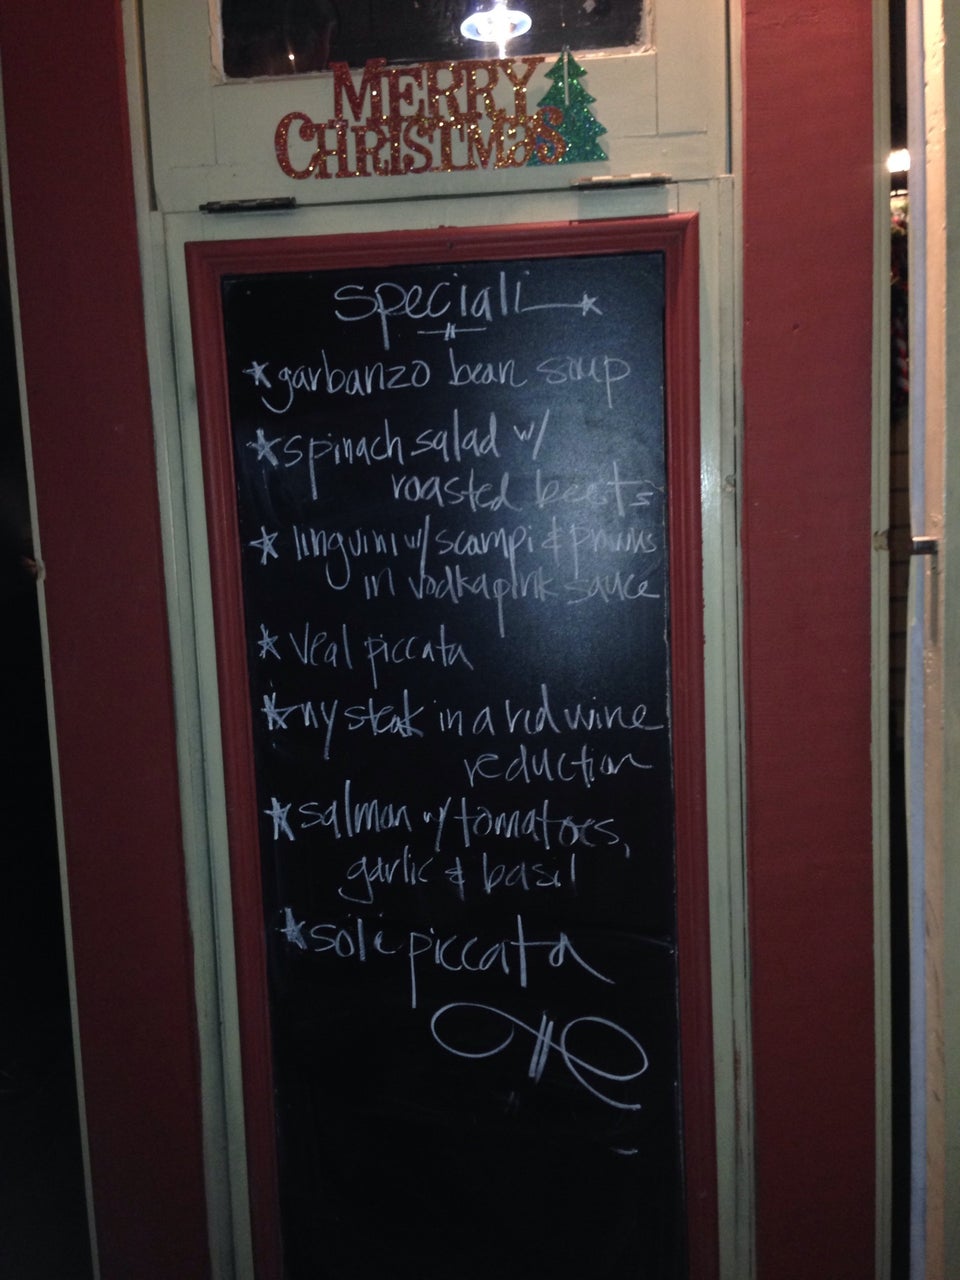 MERRY
CHRISTMAS
speciali
* garbanzo bean soup
* spinach salad w/
roasted beets
* linguini w/ scampi & prawns
in vodka pink sauce
* veal piccata
* ny steak in a red wine
reduction
* salmon w/ tomatoes,
garlic & basil
* sole piccata